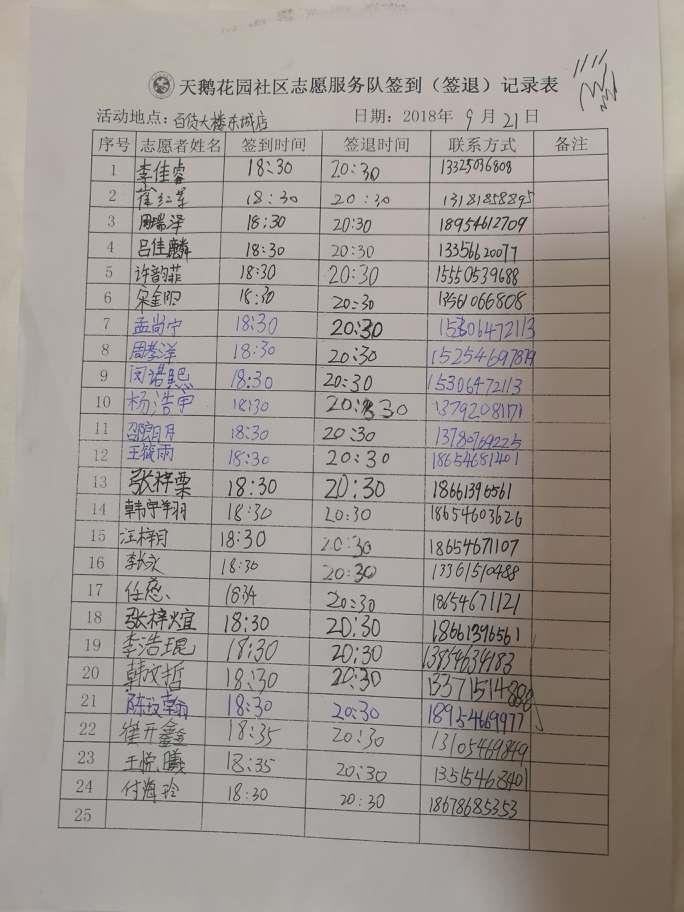 天鹅花园社区志愿服务队签到（签退）记录表
活动地点：百货大楼东城店 日期：2018年 9 月 21 日
序号 志愿者姓名 签到时间 签退时间 联系方式 备注
1 李佳睿 18:30 20:30 13325036808
2 崔红军 18:30 20:30 13181858895
3 周瑞泽 18:30 20:30 18954612709
4 吕佳麟 18:30 20:30 13356620077
5 许韵菲 18:30 20:30 15550539688
6 18:30 20:30 13561066808
7 孟尚宁 18:30 20:30 15306472113
8 18:30 20:30
9 18:30 20:30 15306472113
10 杨浩宇 18:30 13792081171
11 18:30 20:30 13780769225
12 18:30 20:30 18654681401
13 张梓栗 18:30 20:30 18661396561
14 18:30 20:30 18654603626
15 汪梓月 18:30 20:30 18654671107
16 18:30 20:30 13361510488
17 1834 20:30 18654671121
18 张梓煊 18:30 20:30 18661396561
19 李浩琨 18:30 20:30
20 韩文哲 18:30 20:30
21 18:30 20:30 18954669977
22 崔开鑫 18:35 20:30 13105469849
23 王悦曦 18:35 20:30 13515468401
24 付海玲 18:30 20:30 18678685353
25